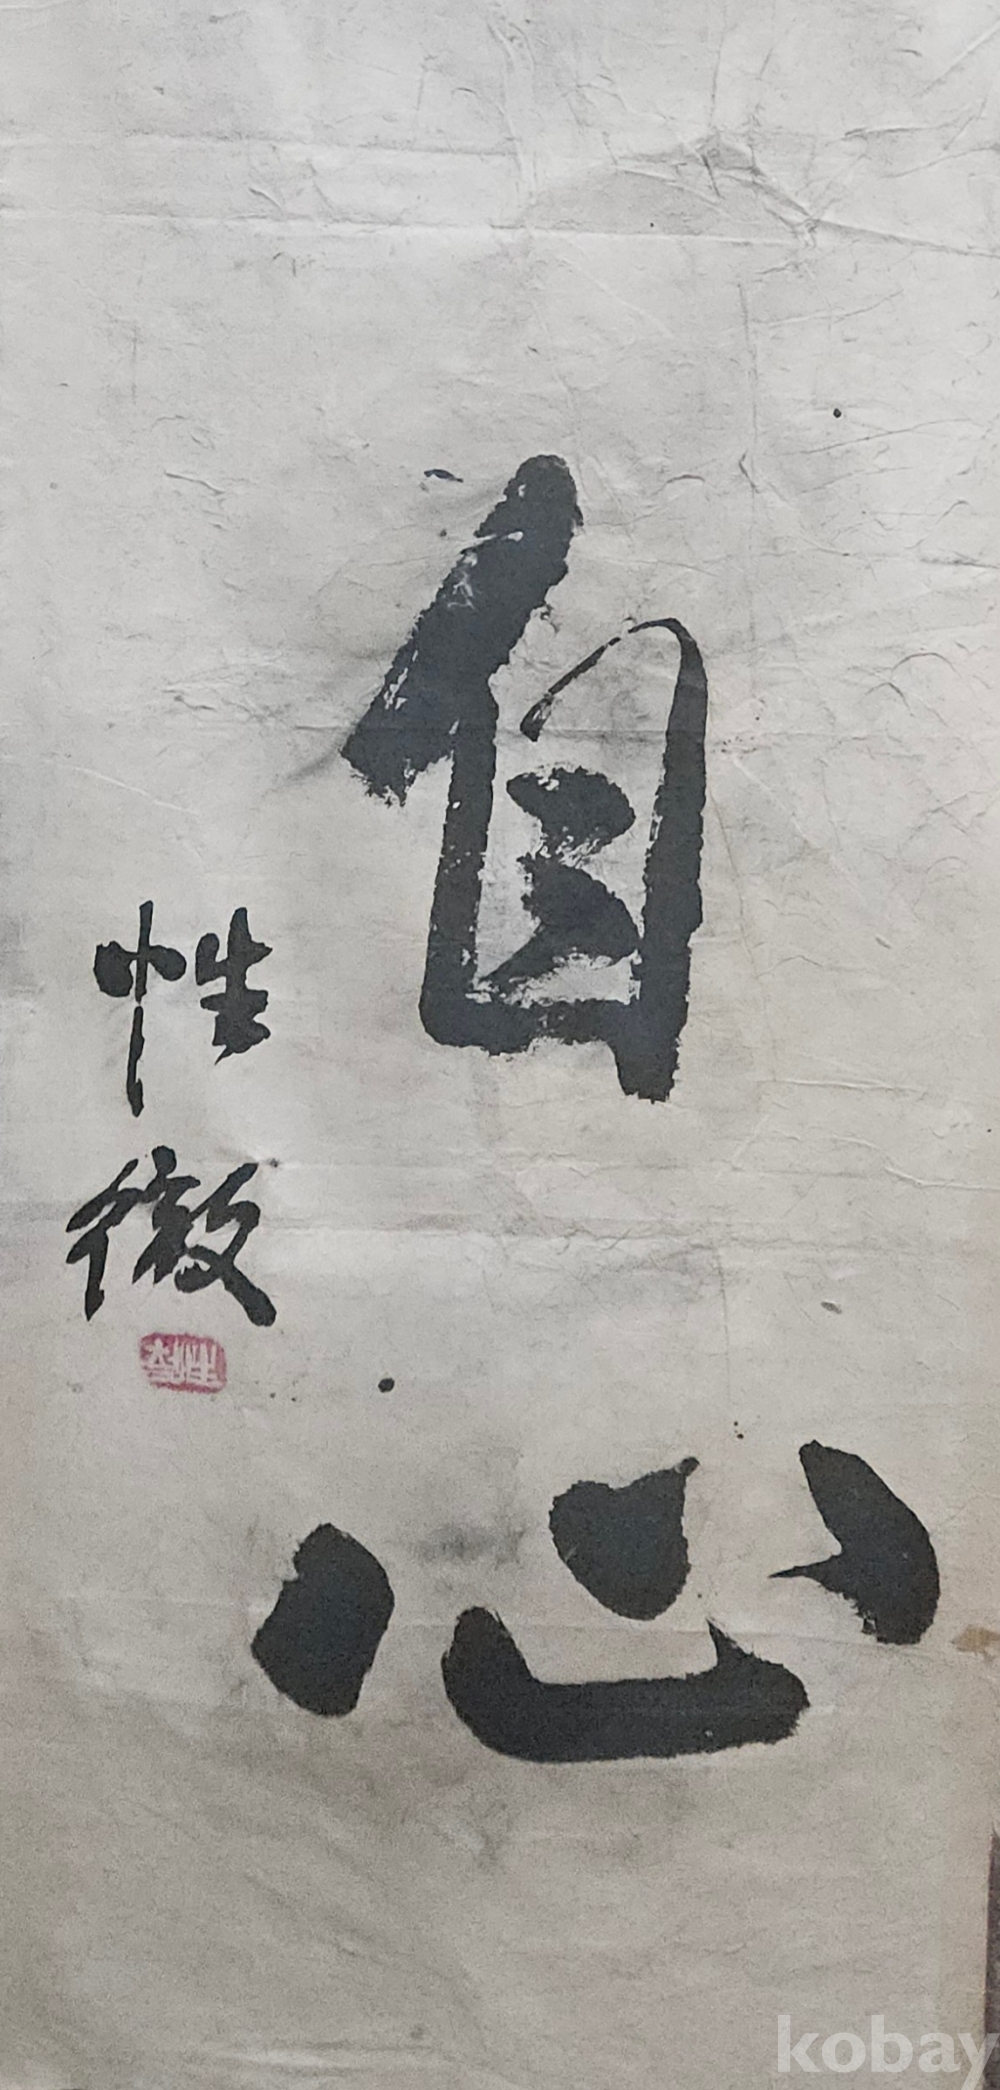 自心
性徹
kobay